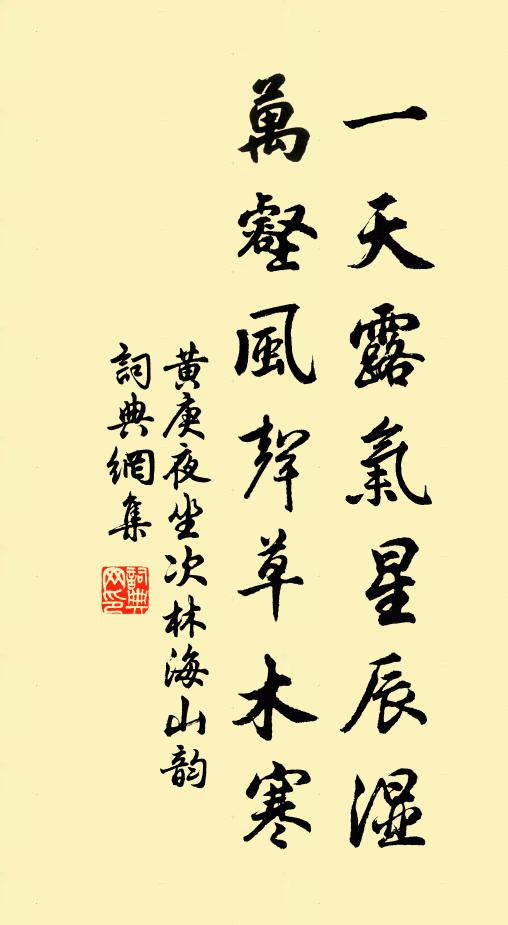 一天露氣星辰濕
萬壑風聲草木寒
黃庚夜坐次林海山韵
詞典網集
詞典
网印